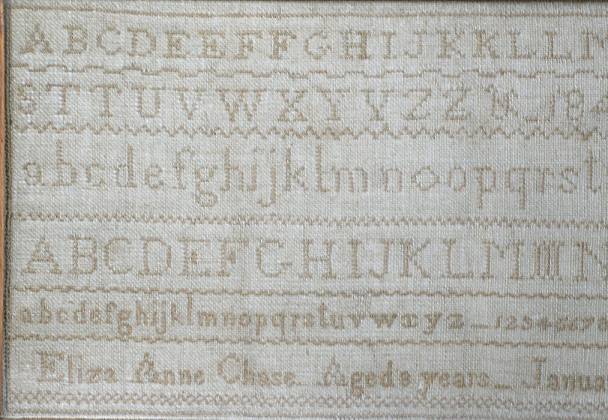 A B C D E E F F G H I J K K L L M
S T T U V W X Y Y Z Z & _ 184
a b c d e f g h i j k l m n o o p q r s t
A B C D E F G H I J K L M M N
a b c d e f g h i j k l m n o p q r s t u v w x y z _ 12345678
Eliza Anne Chase Aged 8 years _ Janua